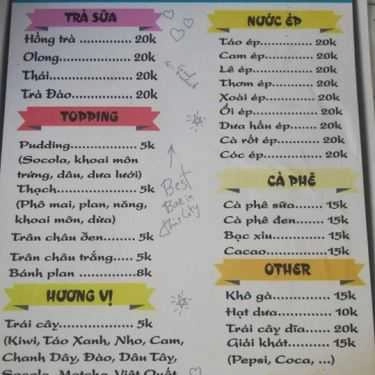 TRÀ SỮA
Hồng trà ............ 20k
Olong................. 20k
Thái.................... 20k
Trà Đào.............. 20k
TOPPING
Pudding................ 5k
(Socola, khoai môn
trứng, dâu, dưa lưới)
Thạch................... 5k
(Phô mai, plan, năng,
khoai môn, dừa)
Trân châu đen..... 5k
Trân châu trắng..... 5k
Bánh plan ............ 8k
HƯƠNG VỊ
Trái cây................ 5k
(Kiwi, Táo Xanh, Nho, Cam,
Chanh Dây, Đào, Dâu Tây,
Socola, Matcha, Việt Quất
NƯỚC ÉP
Táo ép............. 20k
Cam ép............ 20k
Lê ép............... 20k
Thơm ép.......... 20k
Xoài ép........... 20k
Ổi ép............... 20k
Dưa hấu ép...... 20k
Cà rốt ép ........ 20k
Cóc ép............. 20k
CÀ PHÊ
Cà phê sữa....... 15k
Cà phê đen....... 15k
Bạc xỉu............. 15k
Cacao............... 15k
OTHER
Khô gà............. 15k
Hạt dưa............ 10k
Trái cây dĩa...... 20k
Giải khát.......... 15k
(Pepsi, Coca, ...)
Best
in
City